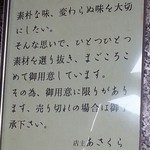 素朴な味、変わらぬ味を大切
にしたい。
そんな思いで、ひとつひとつ
素材を選り抜き、まごころこ
めて御用意しています。
その為、御用意に限りがあり
ます。売り切れの場合は御了
承下さい。
店主 あさくら